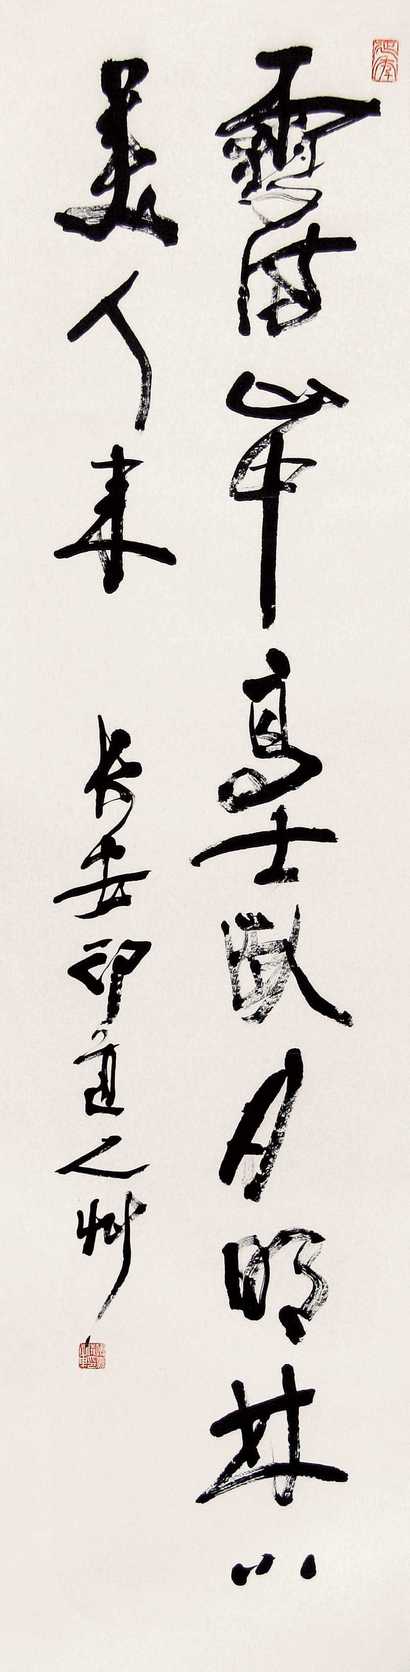 雪满山中高士卧月明林下
美人来 长安